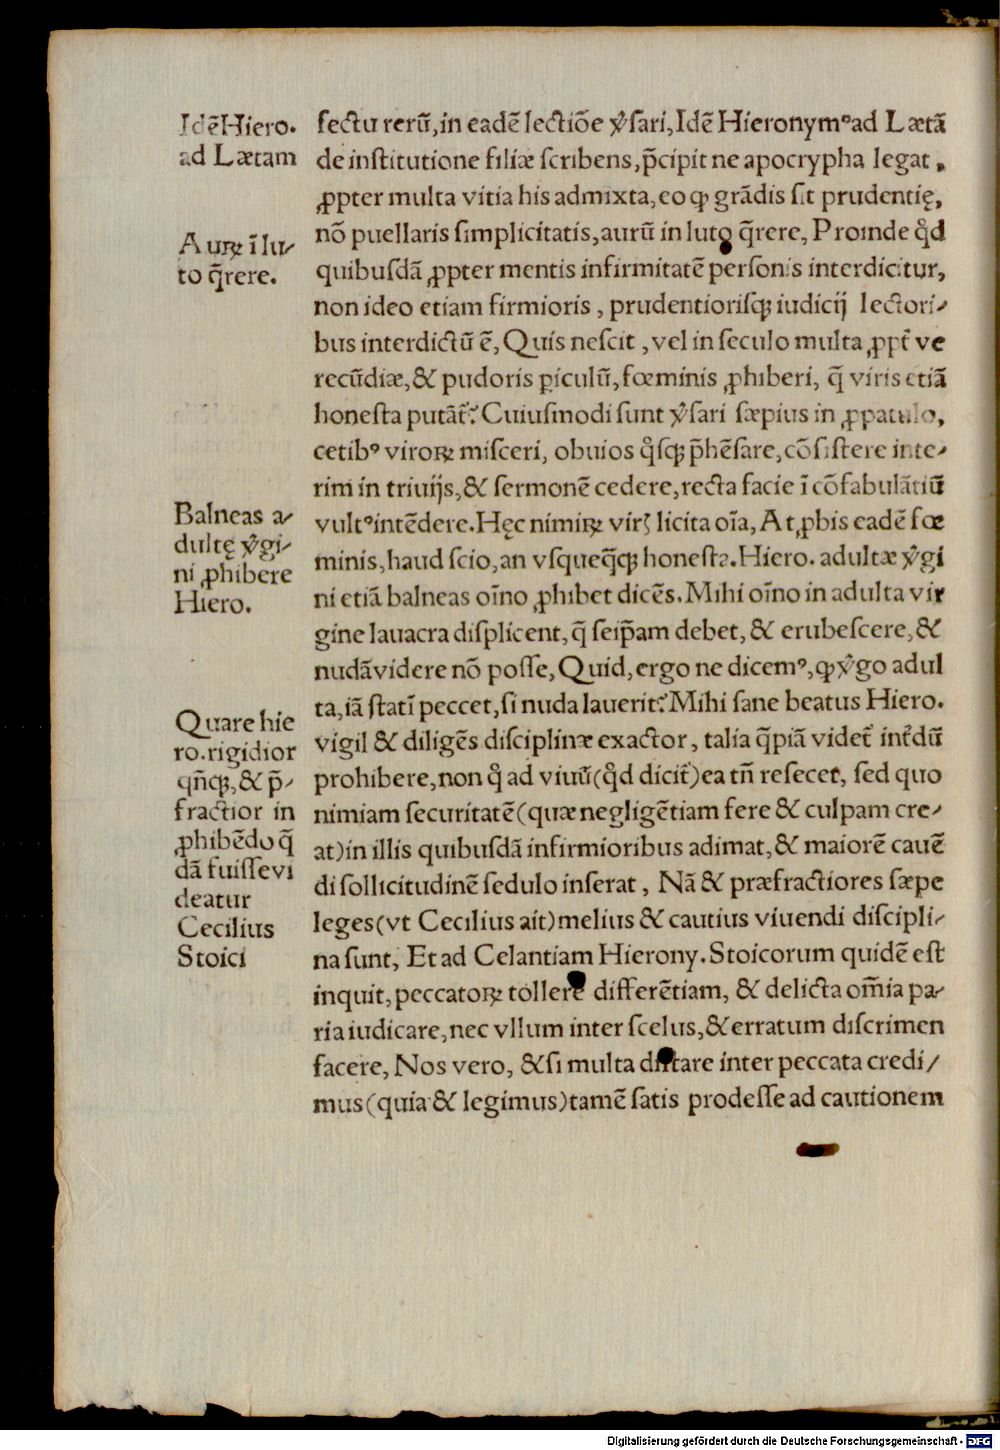 Idẽ Hiero.
ad Lætam
Auꝝ ĩ lu-
to q̃rere.
Balneas a-
dultę v̾gi-
ni ꝓhibere
Hiero.
Quare hie
ro. rigidior
qñqꝫ, & p̃-
fractior in
ꝓhibẽdo q̃
dã fuiſſe vi
deatur
Cecilius
Stoici
fectu rerũ, in eadẽ lectiõe v̾ſari, Idẽ Hieronymꝰ ad Lætã
de inſtitutione filiæ ſcribens, p̃cipit ne apocrypha legat,
ꝓpter multa vitia his admixta, eo ꝙ grãdis ſit prudentię,
nõ puellaris ſimplicitatis, aurũ in luto q̃rere, Proinde qͦd
quibuſdã ꝓpter mentis infirmitatẽ perſonis interdicitur,
non ideo etiam firmioris, prudentioriſqꝫ iudicij lectori-
bus interdictũ ẽ, Quis neſcit, vel in ſeculo multa ꝓpt̃ ve
recũdiæ, & pudoris ꝑiculũ, fœminis ꝓhiberi, q̃ viris etiã
honeſta putãt̃? Cuiuſmodi ſunt v̾ſari ſæpius in ꝓpatulo,
cetibꝰ viroꝝ miſceri, obuios qͦſqꝫ p̃hẽſare, cõſiſtere inte-
rim in triuijs, & ſermonẽ cedere, recta facie ĩ cõfabulãtiũ
vultꝰ intẽdere. Hęc nimiꝝ virſ licita oĩa, At ꝓbis eadẽ fœ
minis, haud ſcio, an vſqueq̃qꝫ honeſta. Hiero. adultæ v̾gi
ni etiã balneas oĩno ꝓhibet dicẽs. Mihi oĩno in adulta vir
gine lauacra diſplicent, q̃ ſeip̃am debet, & erubeſcere, &
nudã videre nõ poſſe, Quid, ergo ne dicemꝰ, ꝙ v̾go adul
ta, iã ſtatĩ peccet, ſi nuda lauerit? Mihi ſane beatus Hiero.
vigil & diligẽs diſciplinæ exactor, talia q̃piã videt̃ int̃dũ
prohibere, non qͦ ad viuũ (qͦd dicit̃) ea tñ reſecet, ſed quo
nimiam ſecuritatẽ (quæ negligẽtiam fere & culpam cre-
at) in illis quibuſdã infirmioribus adimat, & maiorẽ cauẽ
di ſollicitudinẽ ſedulo inſerat, Nã & præfractiores ſæpe
leges (vt Cecilius ait) melius & cautius viuendi diſcipli-
na ſunt, Et ad Celantiam Hierony. Stoicorum quidẽ eſt
inquit, peccatoꝝ tollere differẽtiam, & delicta om̃ia pa-
ria iudicare, nec vllum inter ſcelus, & erratum diſcrimen
facere, Nos vero, & ſi multa diſtare inter peccata credi/
mus (quia & legimus) tamẽ ſatis prodeſſe ad cautionem
Digitalisierung gefördert durch die Deutsche Forschungsgemeinschaft - DFG